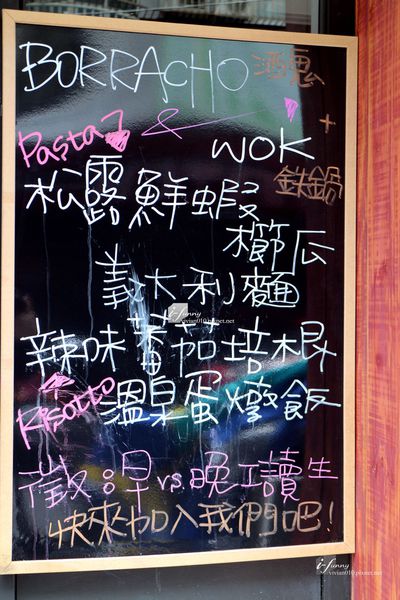 BORRACHO 酒鬼
Pasta & WOK +
鉄鍋
松露鮮蝦
櫛瓜
義大利麵
辣味蕃茄培根
Risotto
溫泉蛋燉飯
徵:早vs.晚工讀生
快來加入我們吧!
i-funny
vivian0101.pixnet.net